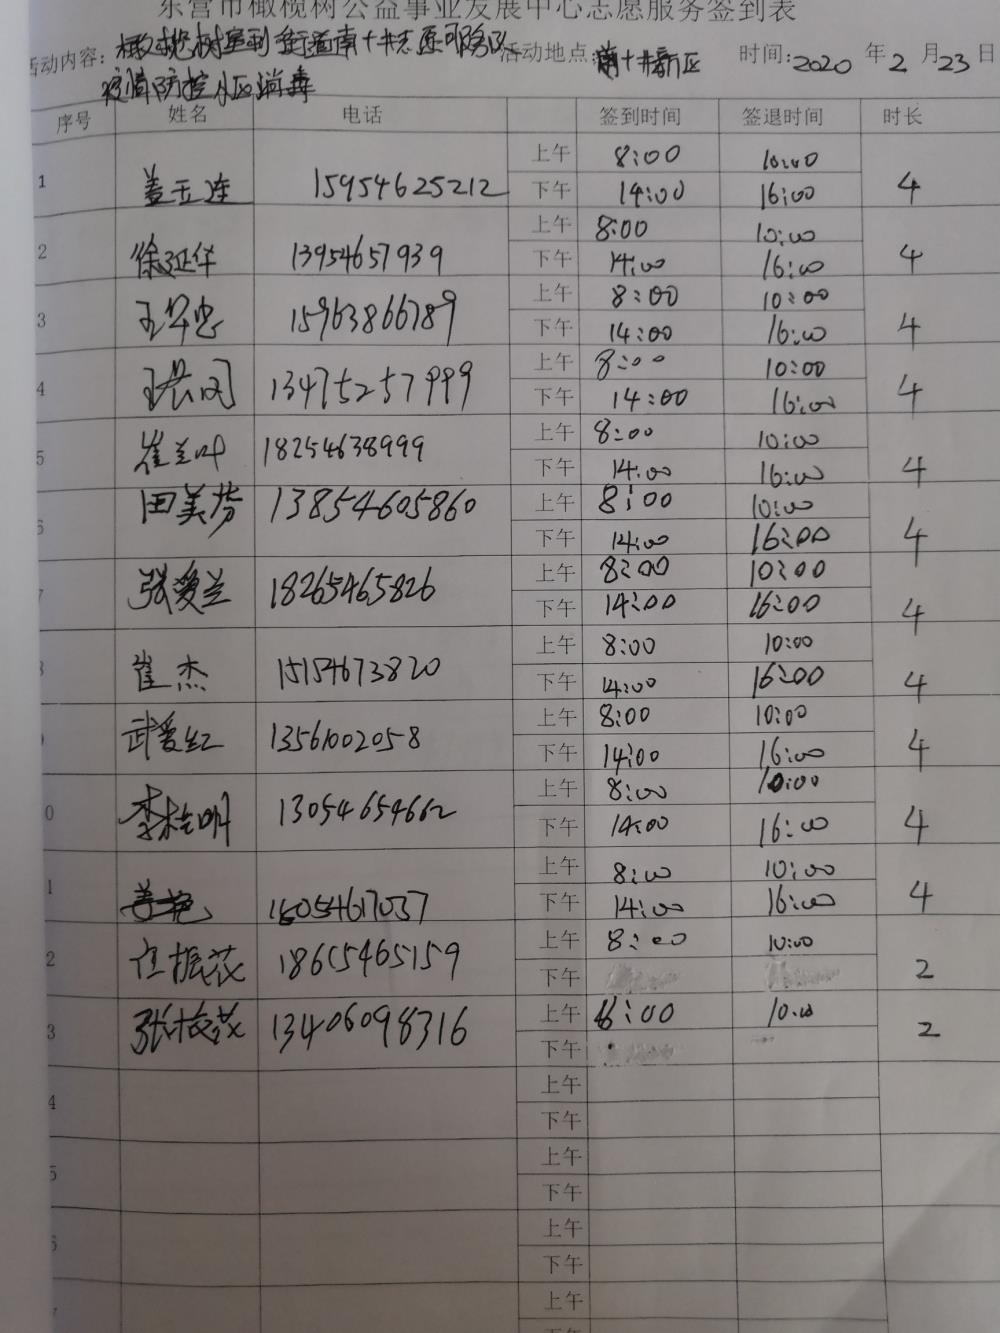 东营市橄榄树公益事业发展中心志愿服务签到表
活动内容: 橄榄树 街道南十井志愿服务队 活动地点: 南十井新区 时间: 2020 年 2 月 23 日
疫情防控小区消毒
序号 姓名 电话 签到时间 签退时间 时长
上午 8:00 10:00
1 盖玉连 15954625212 4
下午 14:00 16:00
上午 8:00 10:00
2 徐延华 13954657939 4
下午 14:00 16:00
上午 8:00 10:00
3 15963866789 4
下午 14:00 16:00
上午 8:00 10:00
4 13475257999 4
下午 14:00 16:00
上午 8:00 10:00
5 崔兰叶 18254638999 4
下午 14:00 16:00
上午 8:00 10:00
6 田美芳 13854605860 4
下午 14:00 16:00
上午 8:00 10:00
7 张爱兰 18265465826 4
下午 14:00 16:00
上午 8:00 10:00
崔杰 15154673820 4
下午 14:00 16:00
上午 8:00 10:00
武爱红 13561002058 4
下午 14:00 16:00
上午 8:00 10:00
0 李桂明 13054654662 4
下午 14:00 16:00
上午 8:00 10:00
1 4
下午 14:00 16:00
上午 8:00 10:00
2 任振花 18655465159 2
下午
上午 8:00 10:00
3 张梅花 13406098316 2
下午
上午
4
下午
上午
5
下午
上午
6
下午
上午
下午